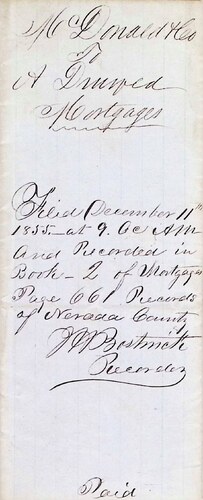 McDonald & Co
To
A
Mortgages
Filed December 11th
1855 — at 9. Oc AM
And Recorded in
Book — 2 of Mortgages
Page 661 Records
of Nevada County
Bostwick
Recorder
Paid